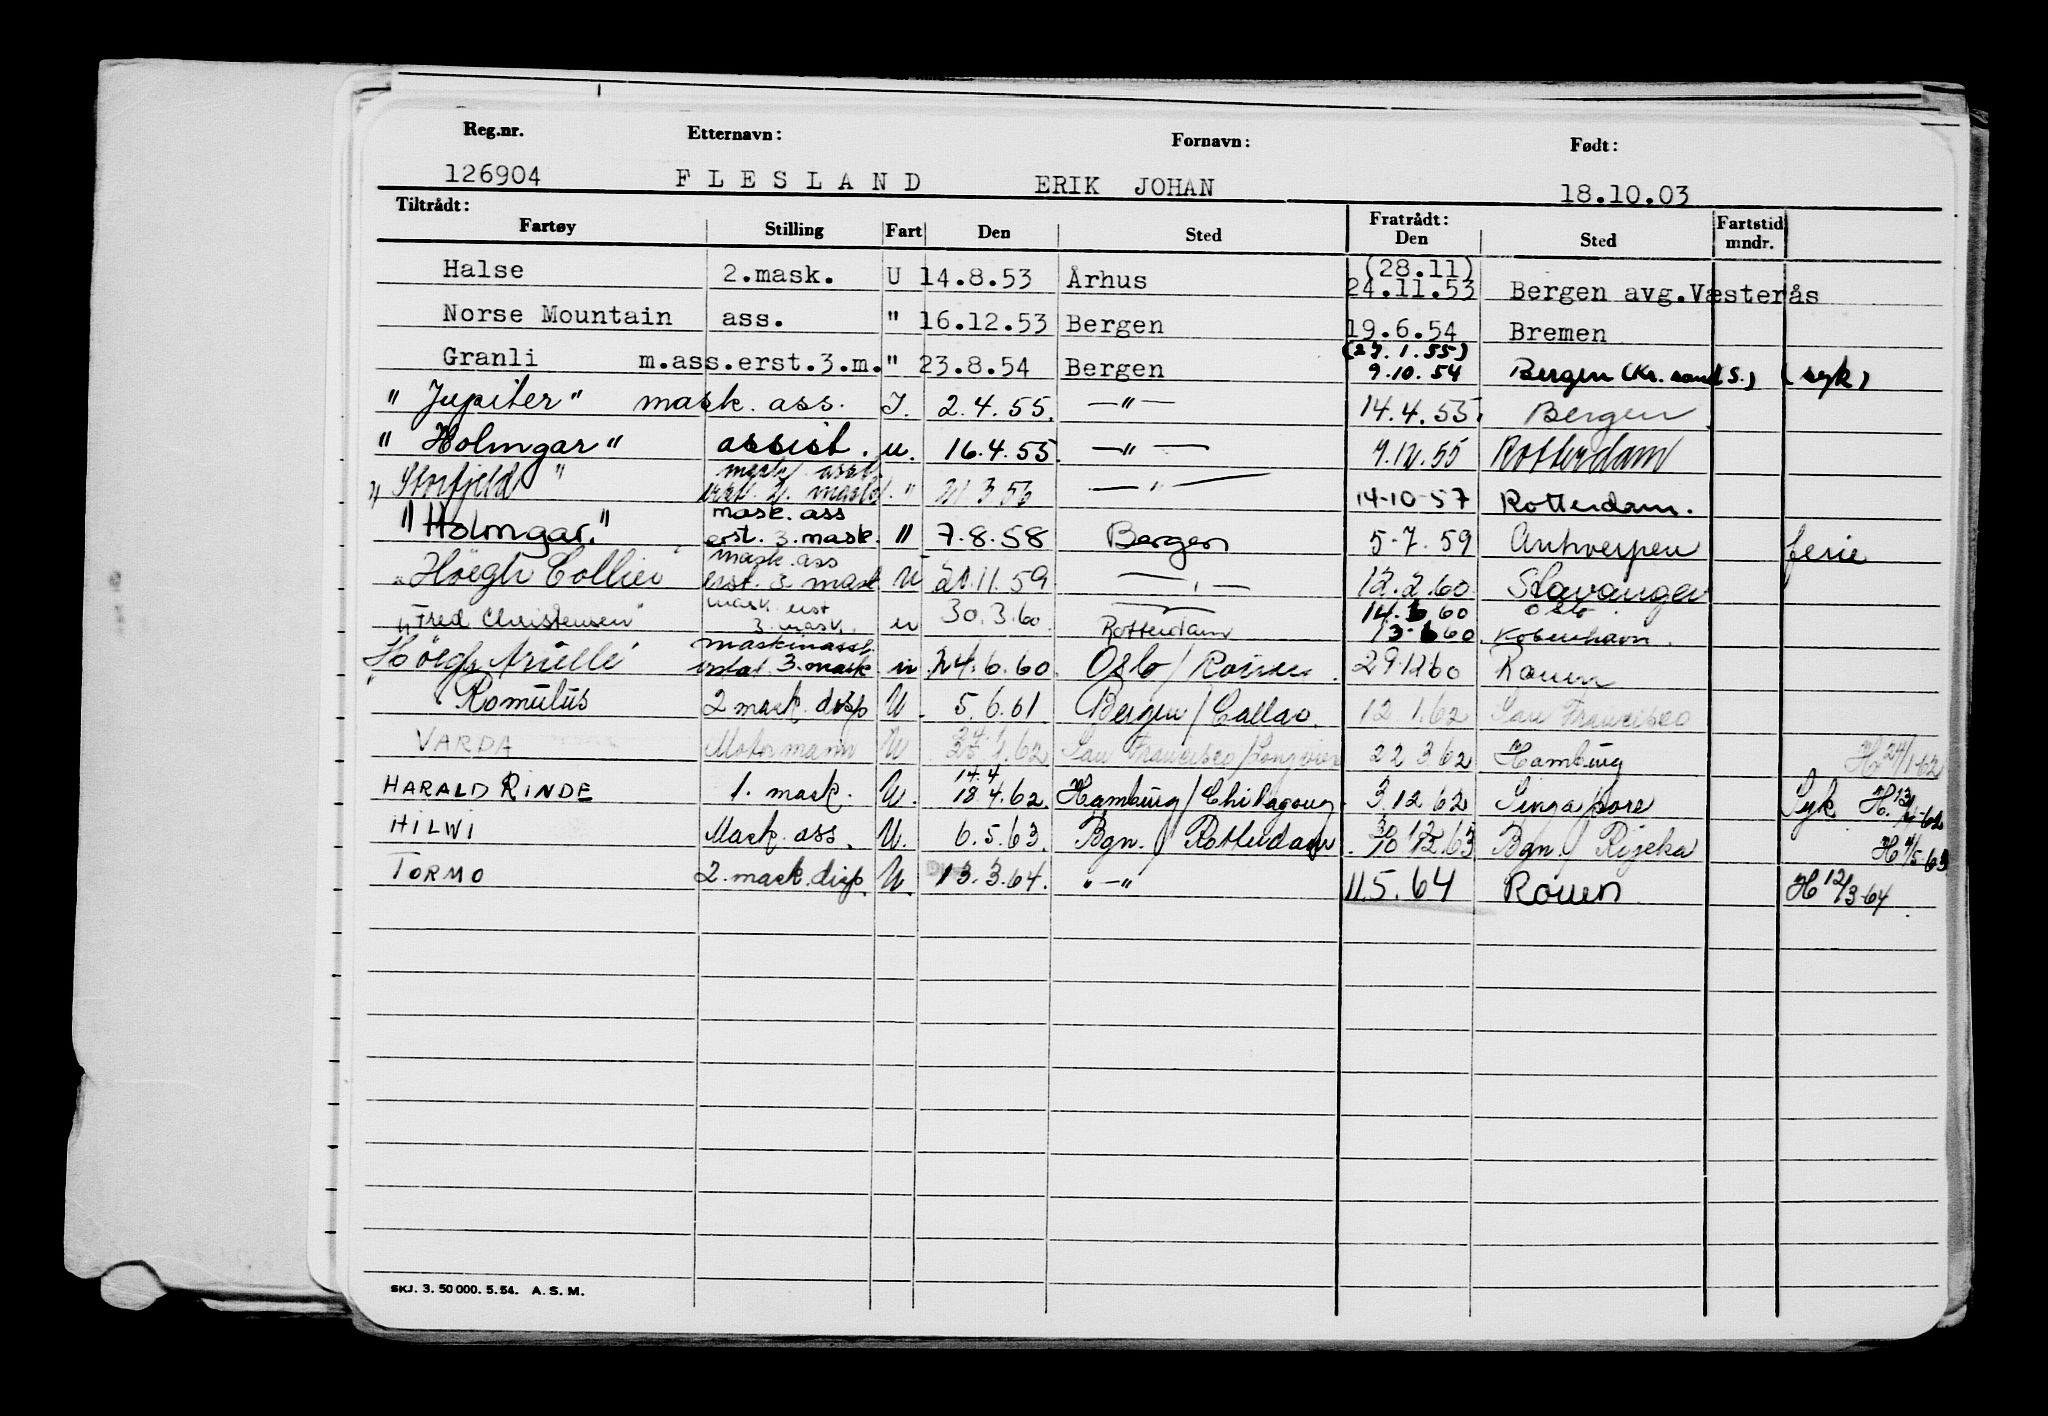 Reg.nr. Etternavn: Fornavn: Født:
126904 FLESLAND ERIK JOHAN 18.10.03
Tiltrådt: Fratrådt: Fartstid
Fartøy Stilling Fart Den Sted Den Sted mndr.
(28.11)
Halse 2.mask. U 14.8.53 Århus 24.11.53 Bergen avg.Væsterås
Norse Mountain ass. " 16.12.53 Bergen 19.6.54 Bremen
(27.1.55)
Granli m.ass.erst.3.m. " 23.8.54 Bergen 9.10.54 Bergen (Kr.sand S.) (syk)
"Jupiter" mask. ass. I. 2.4.55. —"— 14.4.55. Bergen
"Holmgar" assist. u. 16.4.55. —"— 9.12.55 Rotterdam
mask. asst.
"Storfjeld" erst. 2. mask. " 21 3 56 —"— 14-10-57 Rotterdam.
mask. ass
"Holmgar." erst. 3. mask. " 7.8.58 Bergen 5-7.59 Antwerpen ferie
mask. ass
"Höegh Collier erst. 3 mask U 21.11.59 —"— 12.2.60 Stavanger
mask. erst 14.6 60 Oslo
"Fred Christensen" 3. mask. u 30.3.60. Rotterdam 13.6 60. København.
maskinasst.
Höegh Arielle erstat. 3. mask u 24.6.60. Oslo / Rouen 29 12 60 Rouen
Romulus 2 mask. disp U. 5.6.61 Bergen / Callao. 12 1.62 San Francisco
24.1
VARDA Motormann U 25 1.62 San Francisco / Longview 22 3 62 Hamburg H 24/1-62
14.4
HARALD RINDE 1. mask. U. 18 4.62. Hamburg / Chitagoug. 3 12 62 Singapore Syk H.
HILWI Mask. ass. U. 6.5.63. Bgn. / Rotterdam 10 12.63 Bgn. / Rijeka H 4/5-63
TORMO 2. mask. disp. U. 13.3.64. "—" 11.5.64 Rouen H 12/3-64
SKJ. 3. 50 000. 5. 54. A. S. M.